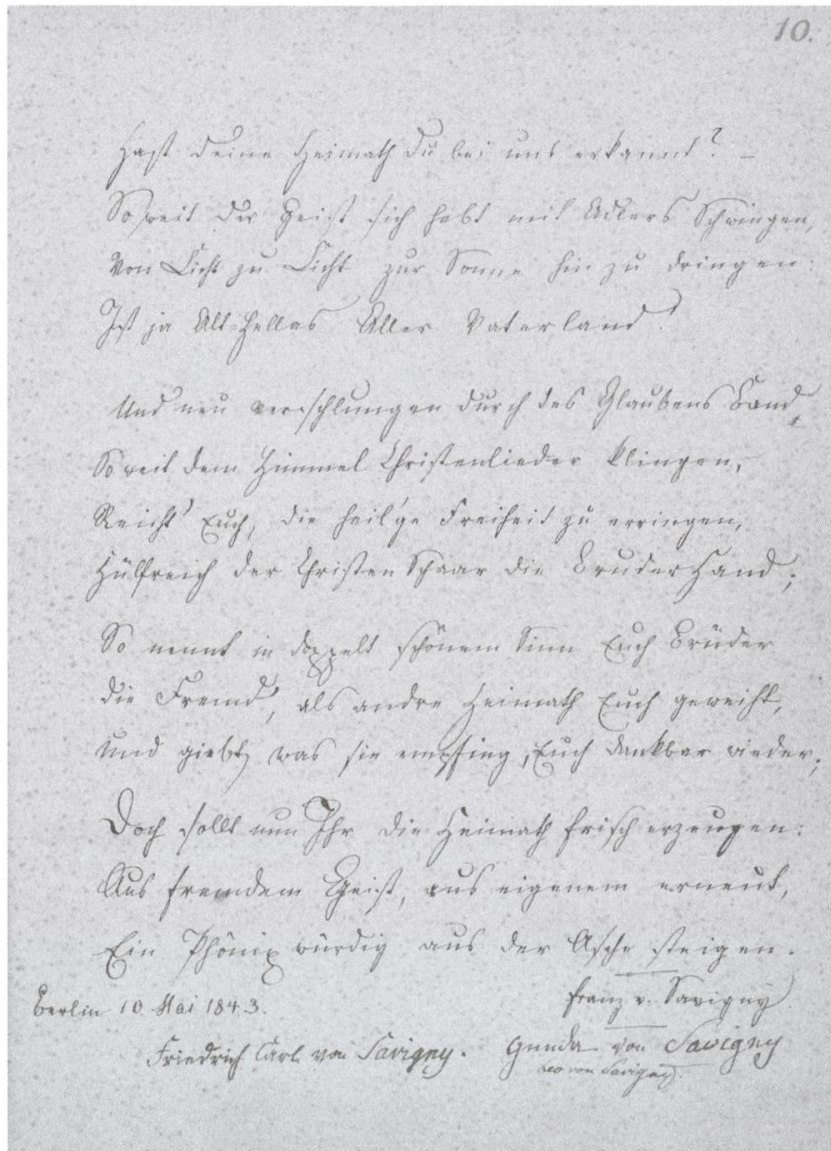 10.
Hast Deine Heimath Du bei uns erkannt? –
Soweit der Geist sich hebt mit Adlers Schwingen,
Von Licht zu Licht zur Sonne hin zu dringen:
Ist ja Alt-Hellas Aller Vaterland!
Und neu verschlungen durch des Glaubens Band,
Soweit dem Himmel Christenlieder klingen,
Reicht Euch, die heil'ge Freiheit zu erringen,
Hülfreich der Christen Schaar die Bruderhand;
So nennt in doppelt schönem Sinn Euch Brüder
die Fremd', als andre Heimath Euch geweiht,
Und giebt, was sie empfing, Euch dankbar wieder;
Doch sollt nun Ihr die Heimath frisch erzeugen:
Aus fremdem Geist, aus eigenem erneut,
Ein Phönix würdig aus der Asche steigen.
Berlin 10 Mai 1843.
Franz v. Savigny
Friedrich Carl von Savigny. Gunda von Savigny
Leo von Savigny.